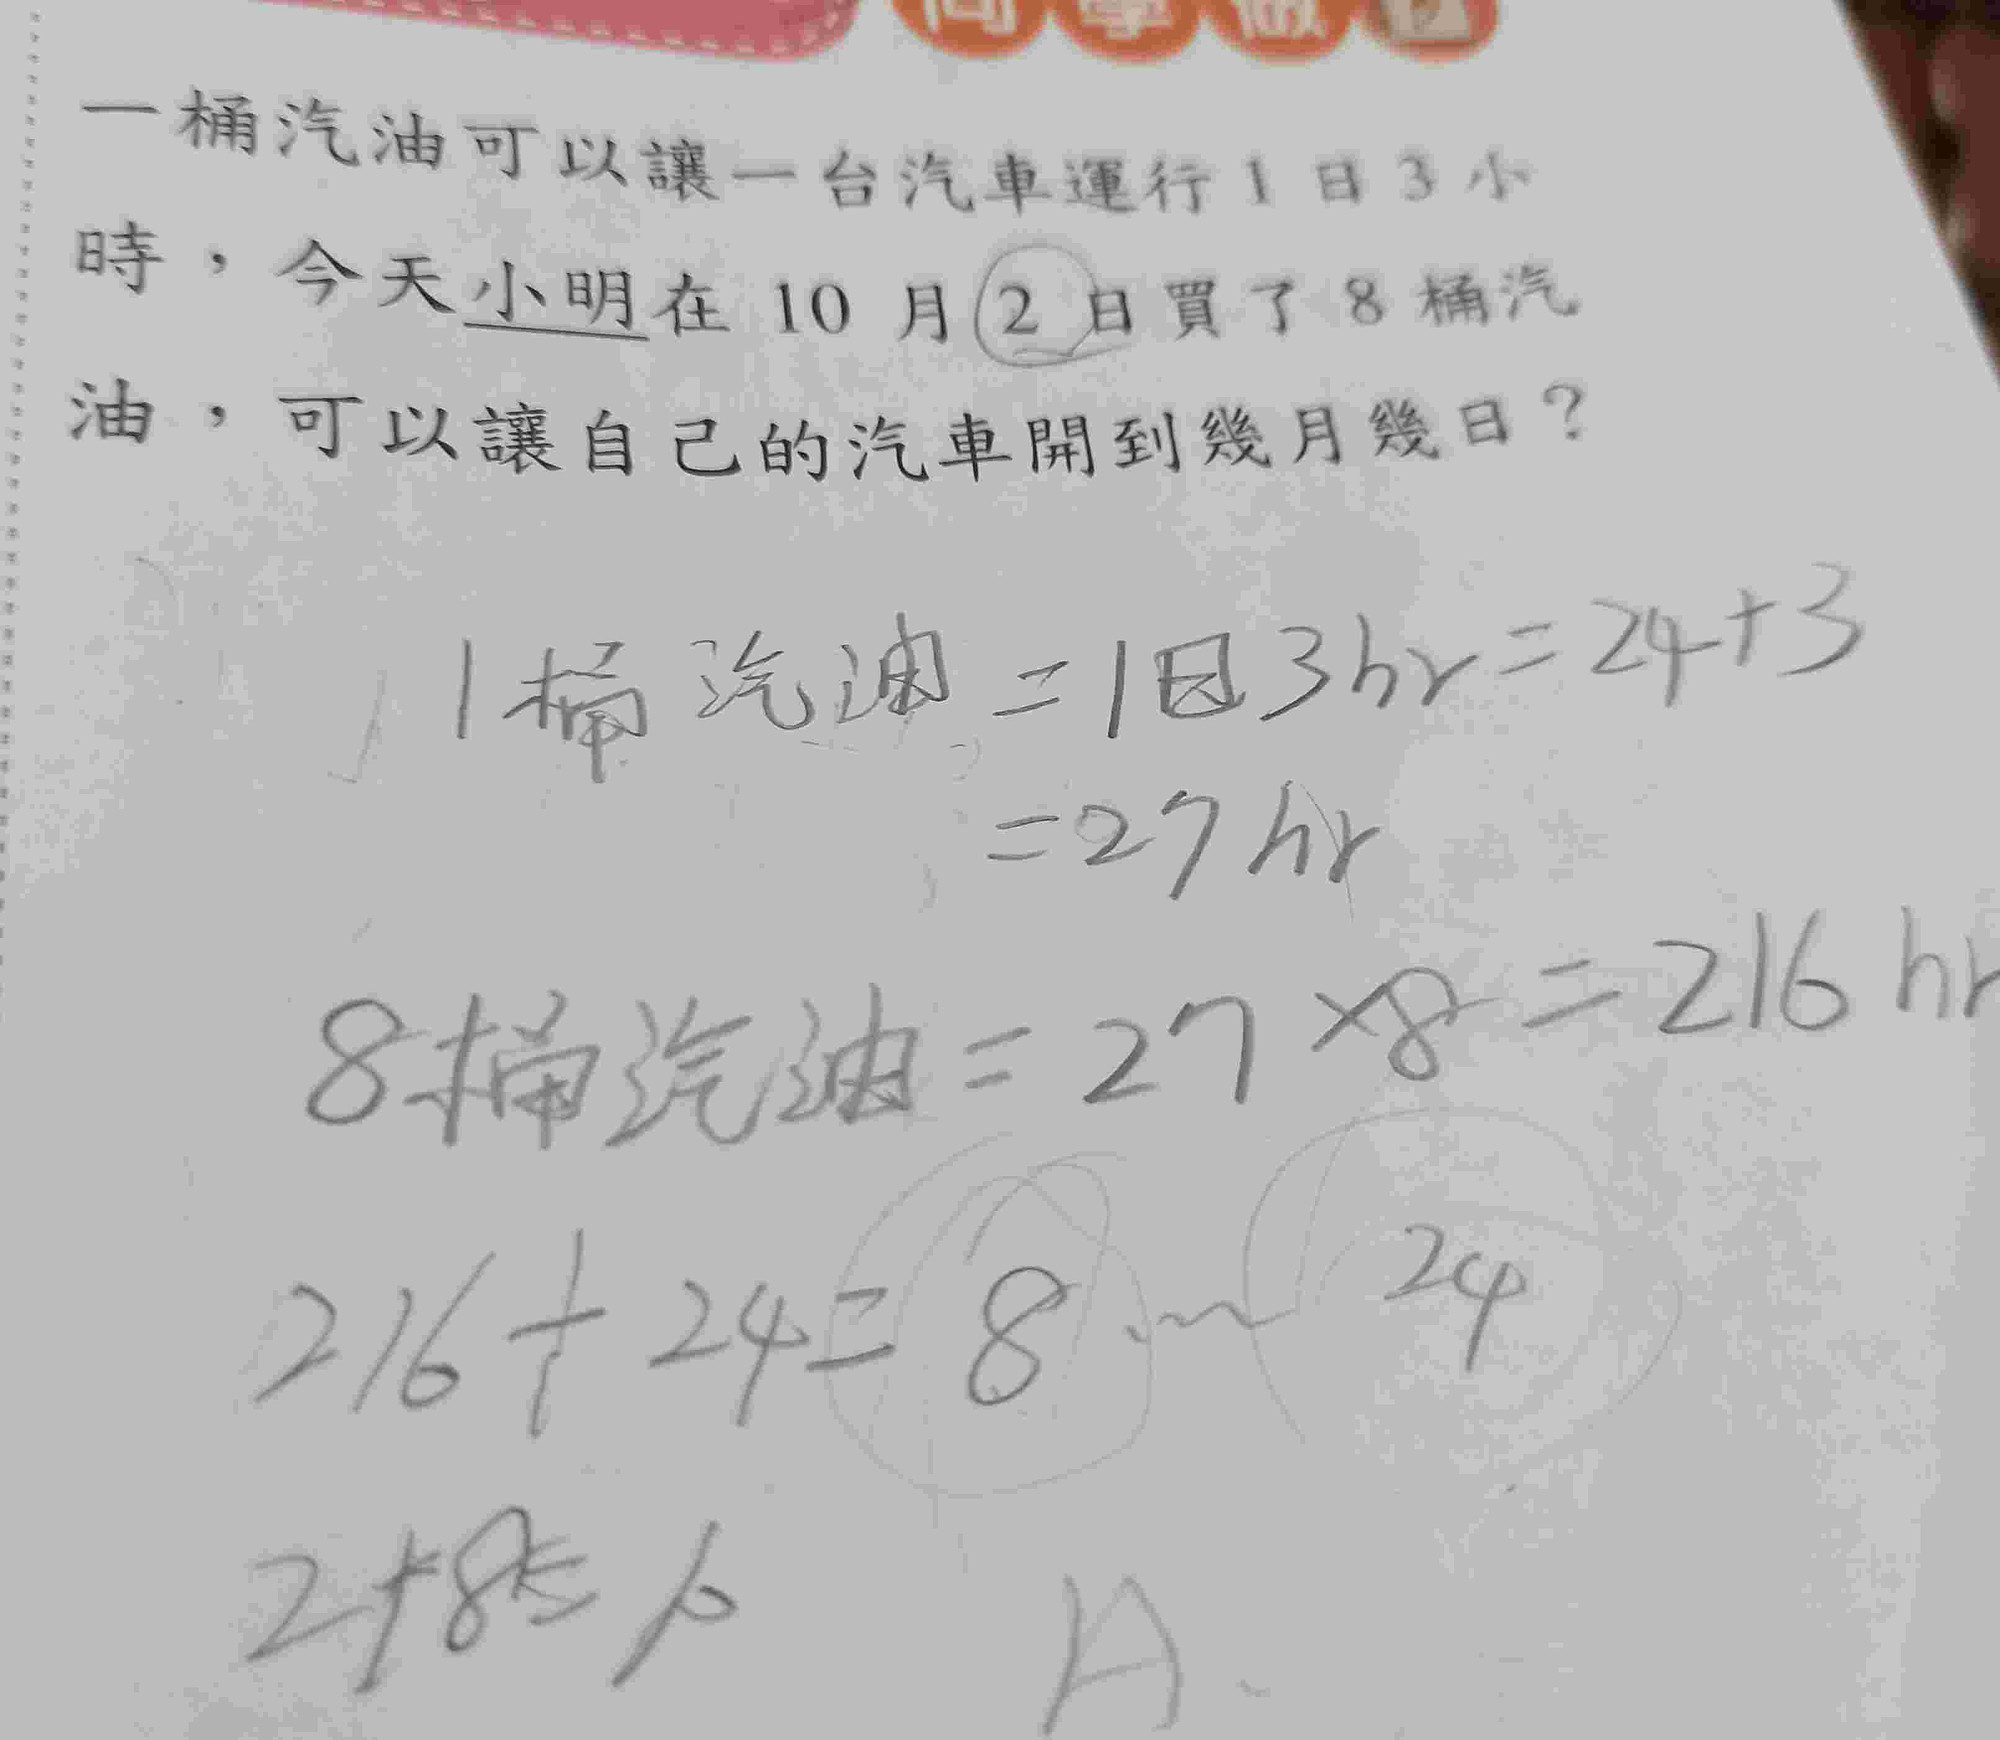 一桶汽油可以讓一台汽車運行1日3小
時，今天小明在10月2日買了8桶汽
油，可以讓自己的汽車開到幾月幾日？
1桶汽油=1日3hr=24+3
=27hr
8桶汽油=27×8=216hr
216÷24=8……24
2+8=10
A.